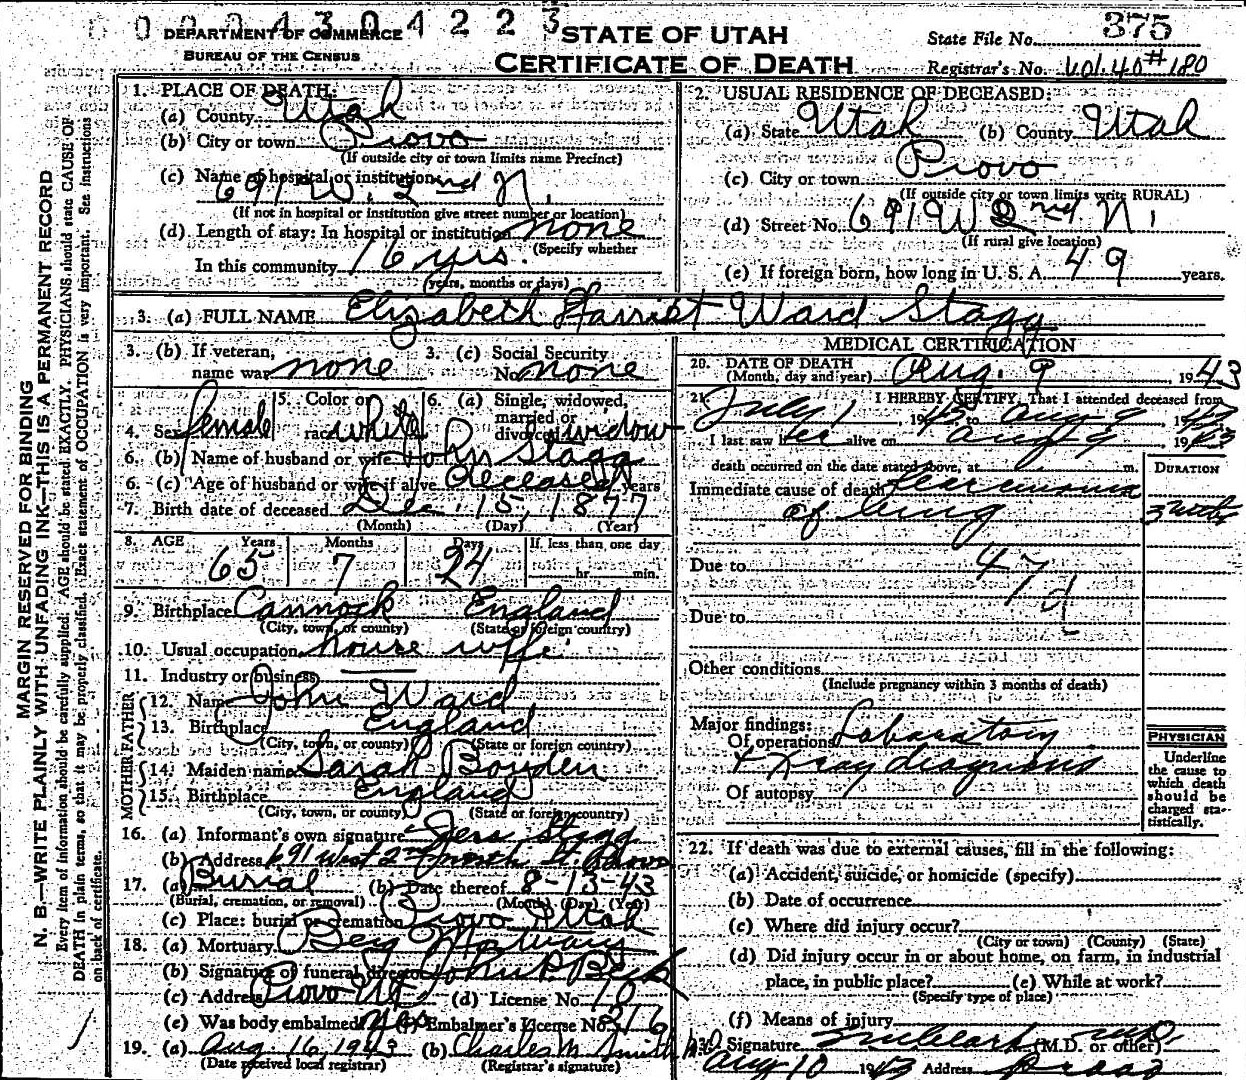 0 0 0 4 3 0 4 2 2 3
DEPARTMENT OF COMMERCE
BUREAU OF THE CENSUS
STATE OF UTAH
CERTIFICATE OF DEATH
State File No. 375
Registrar's No. Vol. 40 #180
MARGIN RESERVED FOR BINDING
N. B.—WRITE PLAINLY WITH UNFADING INK—THIS IS A PERMANENT RECORD
Every item of information should be carefully supplied. AGE should be stated EXACTLY. PHYSICIANS should state CAUSE OF
DEATH in plain terms, so that it may be properly classified. Exact statement of OCCUPATION is very important. See instructions
on back of certificate.
1. PLACE OF DEATH:
(a) County Utah
(b) City or town Provo
(If outside city or town limits name Precinct)
(c) Name of hospital or institution
691 W. 2nd N.
(If not in hospital or institution give street number or location)
(d) Length of stay: In hospital or institution none
(Specify whether
In this community 16 yrs.
years, months or days)
2. USUAL RESIDENCE OF DECEASED:
(a) State Utah (b) County Utah
(c) City or town Provo
(If outside city or town limits write RURAL)
(d) Street No. 691 W 2nd N.
(If rural give location)
(e) If foreign born, how long in U. S. A. 49 years.
3. (a) FULL NAME Elizabeth Harriet Ward Stagg
3. (b) If veteran, name war none
3. (c) Social Security No. none
4. Sex female
5. Color or race white
6. (a) Single, widowed, married or divorced widow
6. (b) Name of husband or wife John Stagg
6. (c) Age of husband or wife if alive Deceased years
7. Birth date of deceased Dec. 15, 1877
(Month) (Day) (Year)
8. AGE Years Months Days If less than one day
65 7 24 hr. min.
9. Birthplace Cannock England
(City, town, or county) (State or foreign country)
10. Usual occupation house wife
11. Industry or business
FATHER
12. Name John Ward
13. Birthplace England
(City, town, or county) (State or foreign country)
MOTHER
14. Maiden name Sarah Bowden
15. Birthplace England
(City, town, or county) (State or foreign country)
16. (a) Informant's own signature Stagg
(b) Address 691 West 2nd north St. Provo
17. (a) Burial (b) Date thereof 8-13-43
(Burial, cremation, or removal) (Month) (Day) (Year)
(c) Place: burial or cremation Provo Utah
18. (a) Mortuary Berg Mortuary
(b) Signature of funeral director John P Beck
(c) Address Provo Ut (d) License No. 70
(e) Was body embalmed? Yes (f) Embalmer's License No. 316
19. (a) Aug. 16, 1943 (b) Charles M Smith
(Date received local registrar) (Registrar's signature)
MEDICAL CERTIFICATION
20. DATE OF DEATH
(Month, day and year) Aug. 9, 1943
21. I HEREBY CERTIFY, That I attended deceased from
July 1, 1943, to Aug 9, 1943
I last saw her alive on Aug 9, 1943
death occurred on the date stated above, at m.
DURATION
Immediate cause of death
of lung 3 weeks
Due to 47
d
Due to
Other conditions
(Include pregnancy within 3 months of death)
Major findings:
Of operations Laboratory
& Xray diagnosis
Of autopsy
PHYSICIAN
Underline
the cause to
which death
should be
charged sta-
tistically.
22. If death was due to external causes, fill in the following:
(a) Accident, suicide, or homicide (specify)
(b) Date of occurrence
(c) Where did injury occur?
(City or town) (County) (State)
(d) Did injury occur in or about home, on farm, in industrial
place, in public place? (e) While at work?
(Specify type of place)
(f) Means of injury
23. Signature M.D. (M.D. or other)
Aug 10 1943 Address Provo